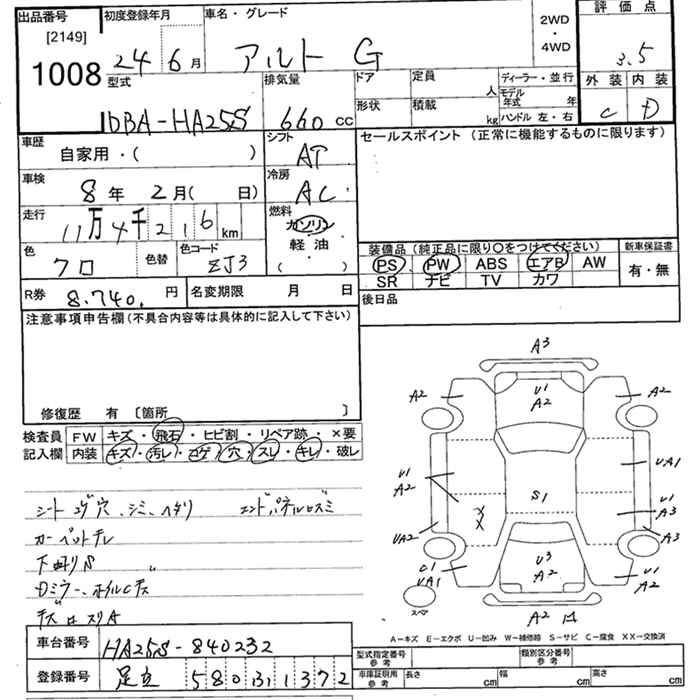 出品番号 初度登録年月 車名・グレード 2WD ・ 4WD 評価点
[2149]
1008 24 6月 アルト G 3.5
型式 排気量 ドア 定員 人 ディーラー・並行 外装 内装
DBA-HA25S 660 CC 形状 積載 kg モデル年式 年 ハンドル 左・右 C D
車歴 自家用・( ) シフト AT セールスポイント (正常に機能するものに限ります)
車検 8年 2月( 日) 冷房 AC
走行 11万4千216 km 燃料 ガソリン 軽油 ・ ( )
色 クロ 色替 色コード ZJ3
装備品 (純正品に限り○をつけてください) 新車保証書
PS PW ABS エアB AW 有・無
SR ナビ TV カワ
R券 8.740. 円 名変期限 月 日 後日品
注意事項申告欄(不具合内容等は具体的に記入して下さい)
修復歴 有 〔箇所 〕
検査員 FW キズ・飛石・ヒビ割・リペア跡・×要
記入欄 内装 キズ・汚レ・コゲ・穴・スレ・キレ・破レ
シート コゲ穴、シミ、ヘタリ エンドパネルロズミ
カーペットテレ
下廻りS
Dミラー、ホイルCキズ
A3
A2 U1 A2 A2
U1 A2 UA1
S1 U1 A3
XX
UA2 A3
U1 UA1 U3 A2 U1 A2
スペア
A2
A-キズ E-エクボ U-凹み W-補修跡 S-サビ C-腐食 XX-交換済
車台番号 HA25S-840232
登録番号 足立 580 ゆ 1372
型式指定番号 参考 類別区分番号 参考
車庫証明用 参考 長さ cm 幅 cm 高さ cm